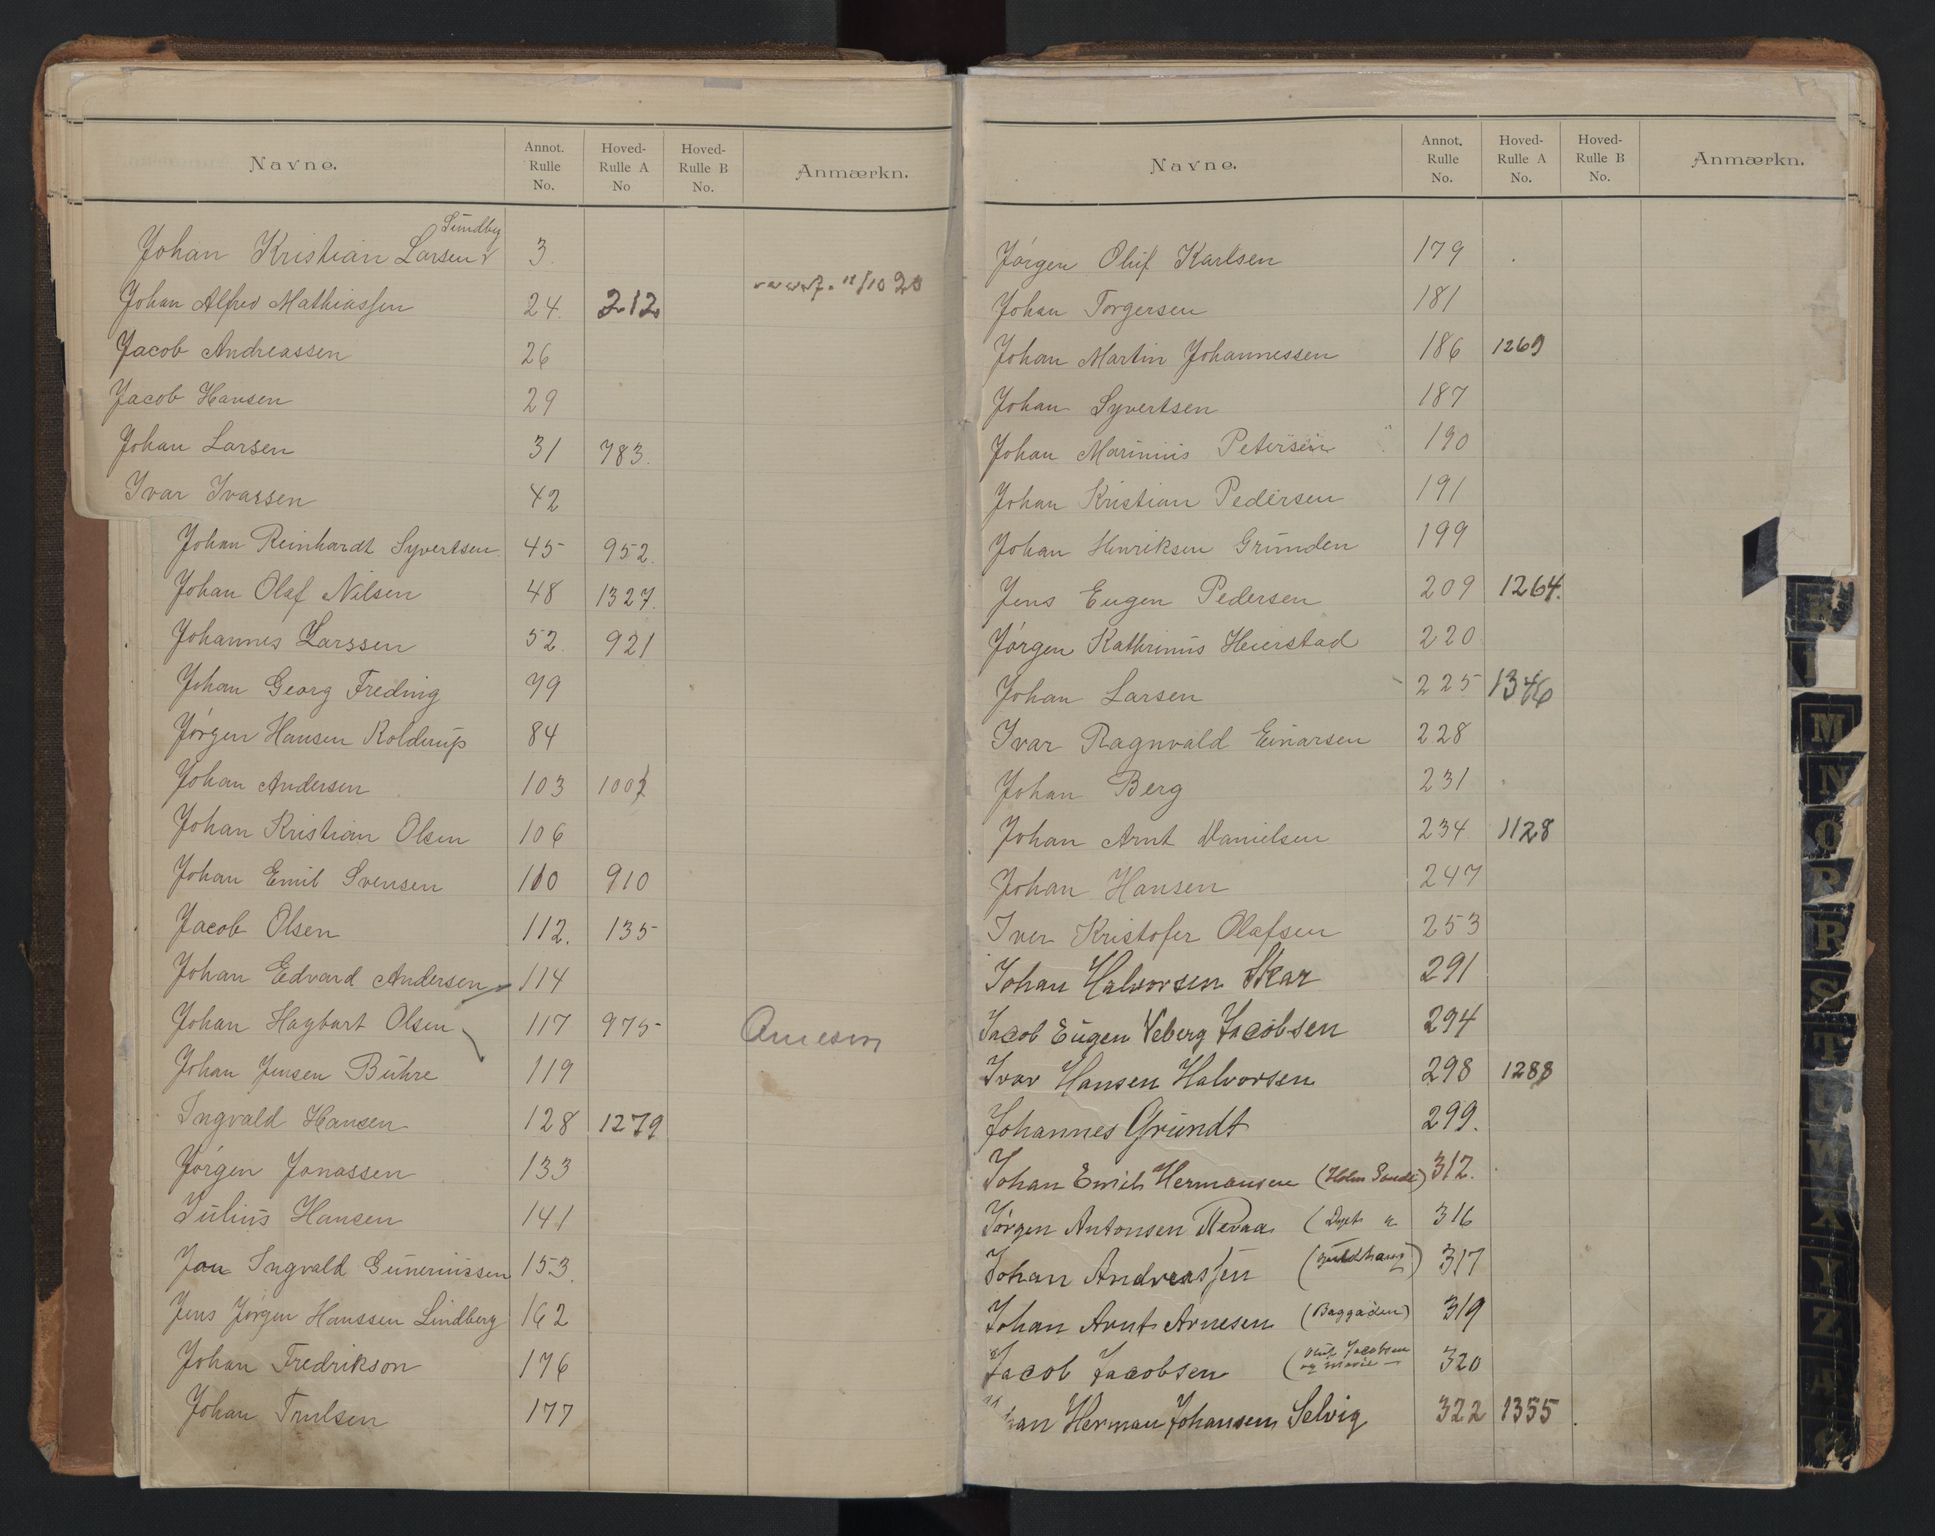 Navne. Annot. Rulle No. Hoved-Rulle A No Hoved-Rulle B No. Anmærkn.
Sundby
Johan Kristian Larsen 3.
Johan Alfred Mathiassen 24. 212. 11/10 20
Jacob Andreassen 26
Jacob Hansen 29
Johan Larsen 31 783.
Ivar Ivarsen 42
Johan Reinhardt Syvertsen 45 952.
Johan Olaf Nilsen 48 1327.
Johannes Larssen 52. 921
Johan Georg Freding 79
Jørgen Hansen Kolderup 84
Johan Andersen 103 1002
Johan Kristian Olsen 106
Johan Emil Svensen 110 910
Jacob Olsen 112. 135
Johan Edvard Andersen 114
Johan Hagbart Olsen 117 975 Arnesen
Johan Jensen Bühre 119
Ingvald Hansen 128 1279
Jørgen Jonassen 133
Julius Hansen 141
Jon Ingvald Guneriussen 153.
Jens Jørgen Hanssen Lindberg 162
Johan Fredrikson 176
Johan Trulsen 177
Navne. Annot. Rulle No. Hoved-Rulle A No. Hoved-Rulle B No. Anmærkn.
Jørgen Oluf Karlsen 179
Johan Torgersen 181
Johan Martin Johannessen 186 1269
Johan Syvertsen 187
Johan Marinius Petersen 190
Johan Kristian Pedersen 191
Johan Henriksen Grunden 199
Jens Eugen Pedersen 209 1264.
Jørgen Kathrinus Heierstad 220
Johan Larsen 225 1346
Ivar Ragnvald Einarsen 228
Johan Berg 231
Johan Arnt Danielsen 234 1128
Johan Hansen 247
Iver Kristofer Olafsen 253
Johan Halvorsen Skar 291
Jacob Eugen Veberg Jacobsen 294
Ivar Hansen Halvorsen 298 1288
Johannes Grundt 299.
Johan Emil Hermansen (Holm Sande) 312.
Jørgen Antonsen Revaa ( 316
Johan Andreassen (Guldhaug) 317
Johan Arnt Arnesen (Baggåden) 319
Jacob Jacobsen (Oluf Jacobsen og Marie — 320
Johan Herman Johansen Selvig 322 1355
K
L
M
N
O
P
R
S
T
U
W
X
Y
Z
Æ
Ø